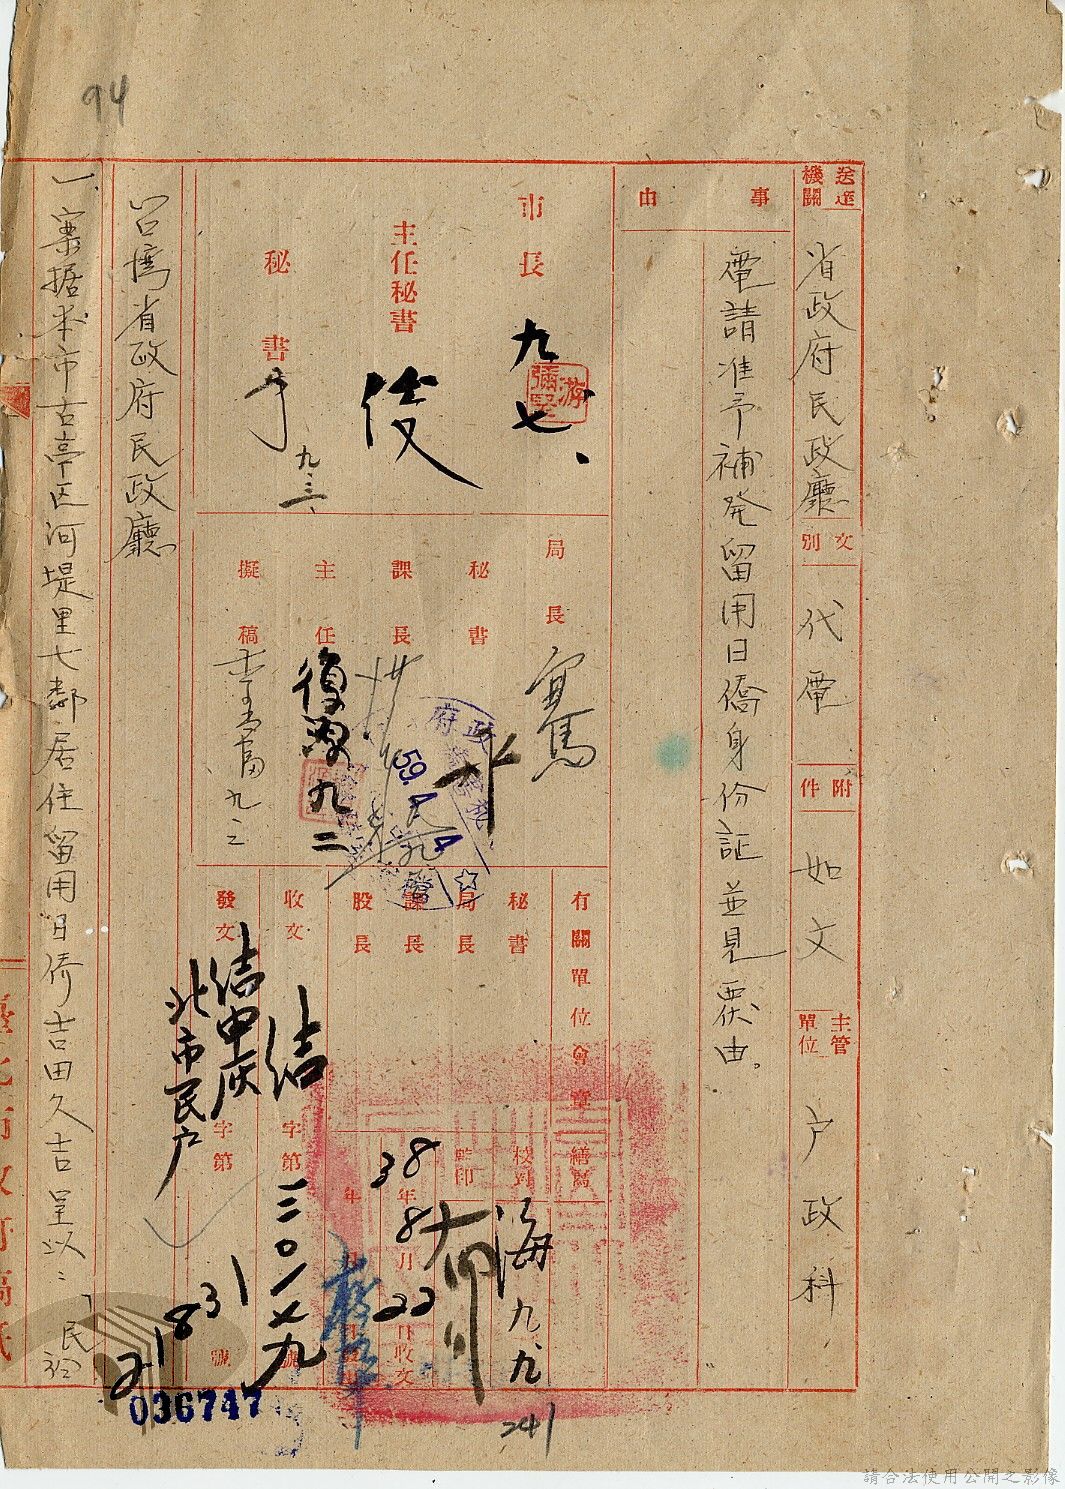 94
送達機關
省政府民政廳
文別
代電
附件
如文
主管單位
户政科
事由
電請准予補発留用日僑身份証並見覆由。
市長
九、七、
游彌堅
主任秘書
秘書
九、三、
局長
秘書
課長
主任
復源九二
擬稿
九、二
政府
59.4.4
有關單位會章
秘書
局長
課長
股長
繕寫
校對
海九九
監印
38年8月22日收文
年
收文
結
字第三〇一七九號
發文
結申灰
北市民户
字第21831號
241
台灣省政府民政廳
一、案据本市古亭区河堤里七鄰居住留用日僑吉田久吉呈以：「民
036747
請合法使用公開之影像